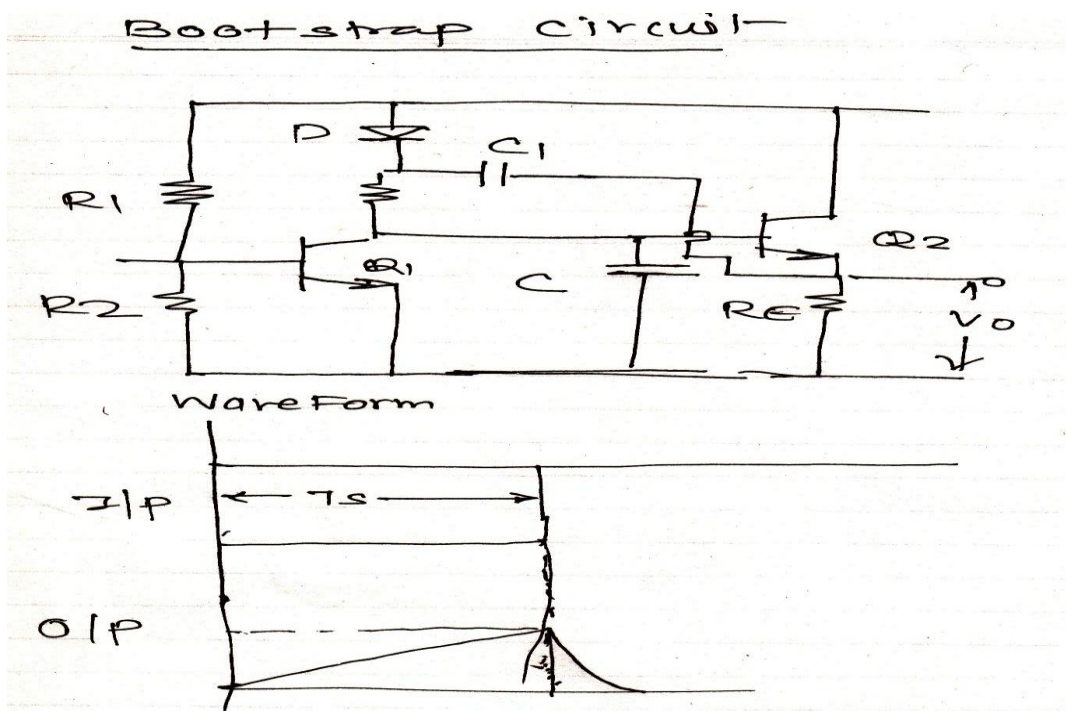 Bootstrap Circuit
D
C1
R1
Q1
Q2
C
R2
RE
Vo
WaveForm
I/P
Ts
O/P